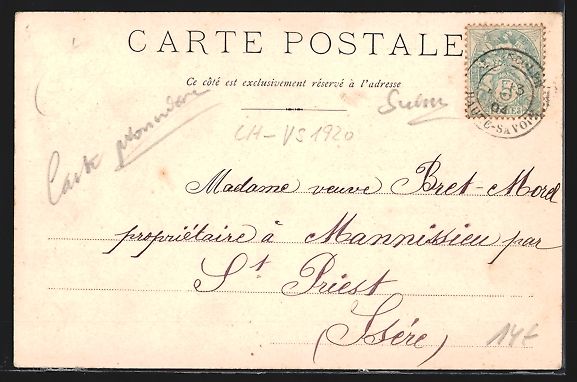 CARTE POSTALE
Ce côté est exclusivement réservé à l'adresse
Carte pionnière
Suisse
CH-VS 1920
5
13
04
HAUTE-SAVOIE
Madame veuve Bret-Mord
propriétaire à Mannissieu par
St Priest
(Isére)
14€